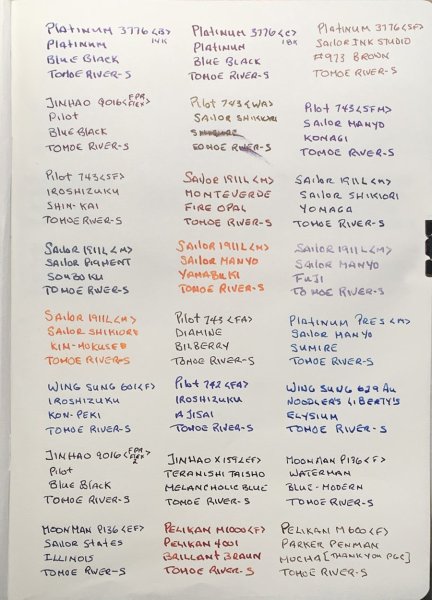 PLATINUM 3776 <B>
14K
PLATINUM
BLUE BLACK
TOMOE RIVER-S
PLATINUM 3776 <C>
18K
PLATINUM
BLUE BLACK
TOMOE RIVER-S
PLATINUM 3776 <SF>
SAILOR INK STUDIO
#973 BROWN
TOMOE RIVER-S
JINHAO 9016 <FPR FLEX>
PILOT
BLUE BLACK
TOMOE RIVER-S
PILOT 743 <WA>
SAILOR SHIKIORI
TOMOE RIVER-S
PILOT 743 <SFM>
SAILOR MANYO
KONAGI
TOMOE RIVER-S
PILOT 743 <SF>
IROSHIZUKU
SHIN-KAI
TOMOE RIVER-S
SAILOR 1911L <M>
MONTEVERDE
FIRE OPAL
TOMOE RIVER-S
SAILOR 1911L <M>
SAILOR SHIKIORI
YONAGA
TOMOE RIVER-S
SAILOR 1911L <M>
SAILOR PIGMENT
SOUBOKU
TOMOE RIVER-S
SAILOR 1911L <M>
SAILOR MANYO
YAMABUKI
TOMOE RIVER-S
SAILOR 1911L <M>
SAILOR MANYO
FUJI
TOMOE RIVER-S
SAILOR 1911L <M>
SAILOR SHIKIORI
KIN-MOKUSEI
TOMOE RIVER-S
PILOT 743 <FA>
DIAMINE
BILBERRY
TOMOE RIVER-S
PLATINUM PRES <M>
SAILOR MANYO
SUMIRE
TOMOE RIVER-S
WING SUNG 601 <F>
IROSHIZUKU
KON-PEKI
TOMOE RIVER-S
PILOT 742 <FA>
IROSHIZUKU
AJISAI
TOMOE RIVER-S
WING SUNG 629 AU
NOODLER'S LIBERTY'S
ELYSIUM
TOMOE RIVER-S
JINHAO 9016 <FPR FLEX>
PILOT
BLUE BLACK
TOMOE RIVER-S
JINHAO X159 <EF>
TERANISHI TAISHO
MELANCHOLIC BLUE
TOMOE RIVER-S
MOONMAN P136 <F>
WATERMAN
BLUE-MODERN
TOMOE RIVER-S
MOONMAN P136 <EF>
SAILOR STATES
ILLINOIS
TOMOE RIVER-S
PELIKAN M1000 <F>
PELIKAN 4001
BRILLANT BRAUN
TOMOE RIVER-S
PELIKAN M600 <F>
PARKER PENMAN
MOCHA [THANK YOU PGC]
TOMOE RIVER-S